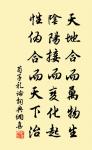 天地合而萬物生
陰陽接而變化起
性偽合而天下治
荀子禮論詞典網書